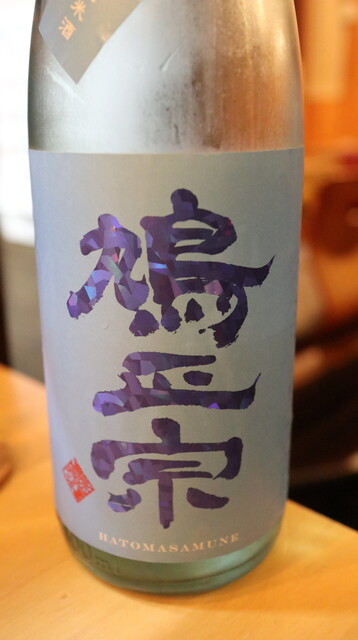 米酒
鳩正宗
HATOMASAMUNE